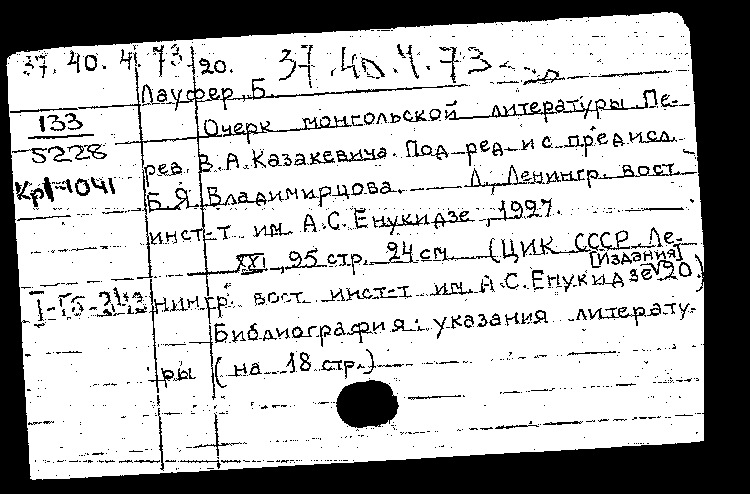 37. 40. 4. 73. 20. 37.40.4.73
Лауфер, Б.
133 Очерк монгольской литературы Пе-
5228 рев. В.А.Казакевича. Под ред. и с предисл.
КрI-1041 Б.Я. Владимирцова. Л., Ленингр. вост.
инст-т им. А.С.Енукидзе, 1927.
XXI, 95 стр. 24 см. (ЦИК СССР. Ле-
[Издания]
нингр. вост. инст-т им. А.С.Енукидзе 20.)
Библиография: указания литерату-
ры (на 18 стр.)